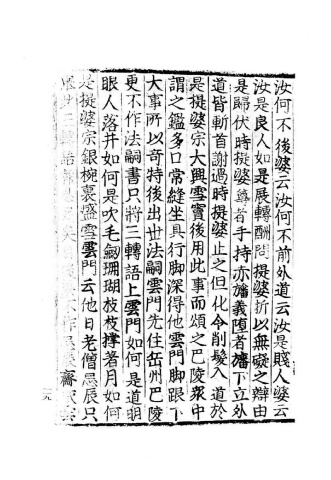 汝何不後婆云汝何不前外道云汝是賤人婆云
汝是良人如是展轉酬問提婆折以無礙之辯由
是歸伏時提婆尊者手持赤旛義墮者旛下立外
道皆斬首謝過時提婆止之但化令削髮入道於
是提婆宗大興雪竇後用此事而頌之巴陵衆中
謂之鑑多口常縫坐具行脚深得他雲門脚跟下
大事所以奇特後出世法嗣雲門先住岳州巴陵
更不作法嗣書只將三轉語上雲門如何是道明
眼人落井如何是吹毛劒珊瑚枝枝撐著月如何
是提婆宗銀椀裏盛雪雲門云他日老僧忌辰只
三轉語